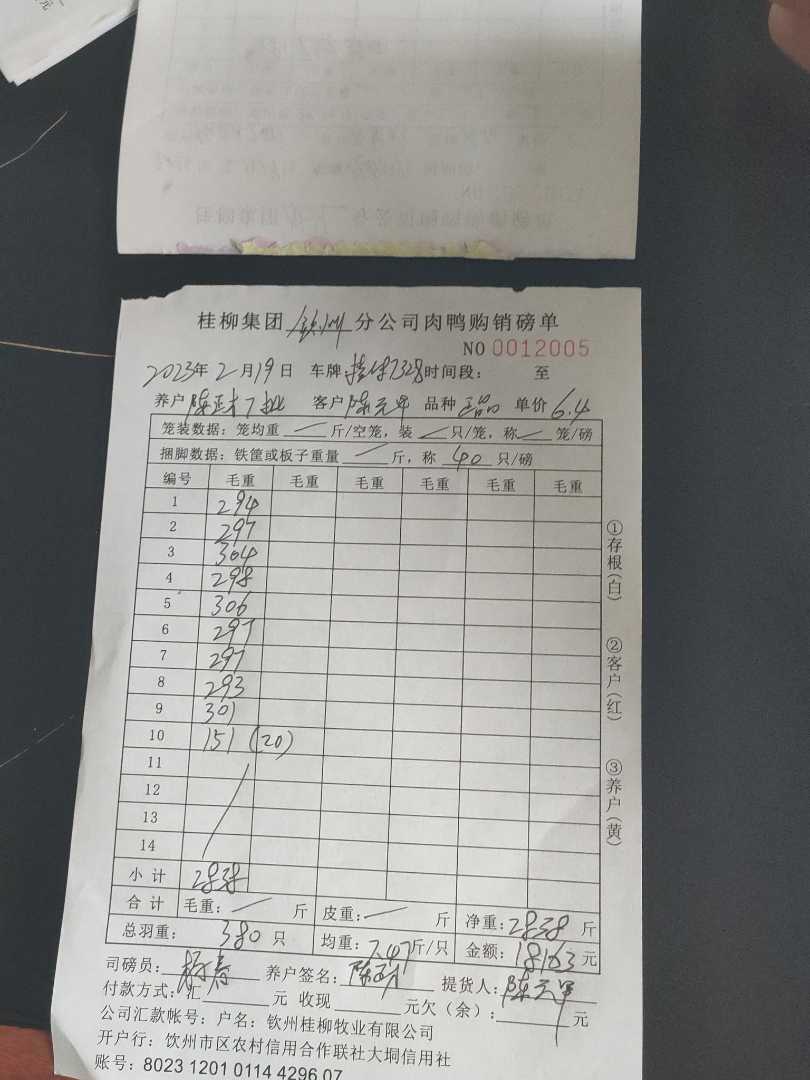 元
桂柳集团钦州分公司肉鸭购销磅单
NO 0012005
2023年2月19日 车牌桂 7328时间段： 至
养户陈 客户陈元军 品种 单价6.4
笼装数据：笼均重 / 斤/空笼，装 / 只/笼，称 / 笼/磅
捆脚数据：铁筐或板子重量 / 斤，称 40 只/磅
编号 毛重 毛重 毛重 毛重 毛重 毛重
1 294
2 297
3 304
4 298
5 306
6 297
7 297
8 293
9 301
10 151 (20)
11
12
13
14
小计 2838
合计 毛重： / 斤 皮重： / 斤 净重：2838 斤
总羽重： 380 只 均重：7.47斤/只 金额：18163元
司磅员：杨春 养户签名：陈 提货人：陈元军
付款方式：汇 元 收现 元欠（余）： 元
公司汇款帐号：户名：钦州桂柳牧业有限公司
开户行：钦州市区农村信用合作联社大垌信用社
账号：8023 1201 0114 4296 07
①存根（白）
②客户（红）
③养户（黄）